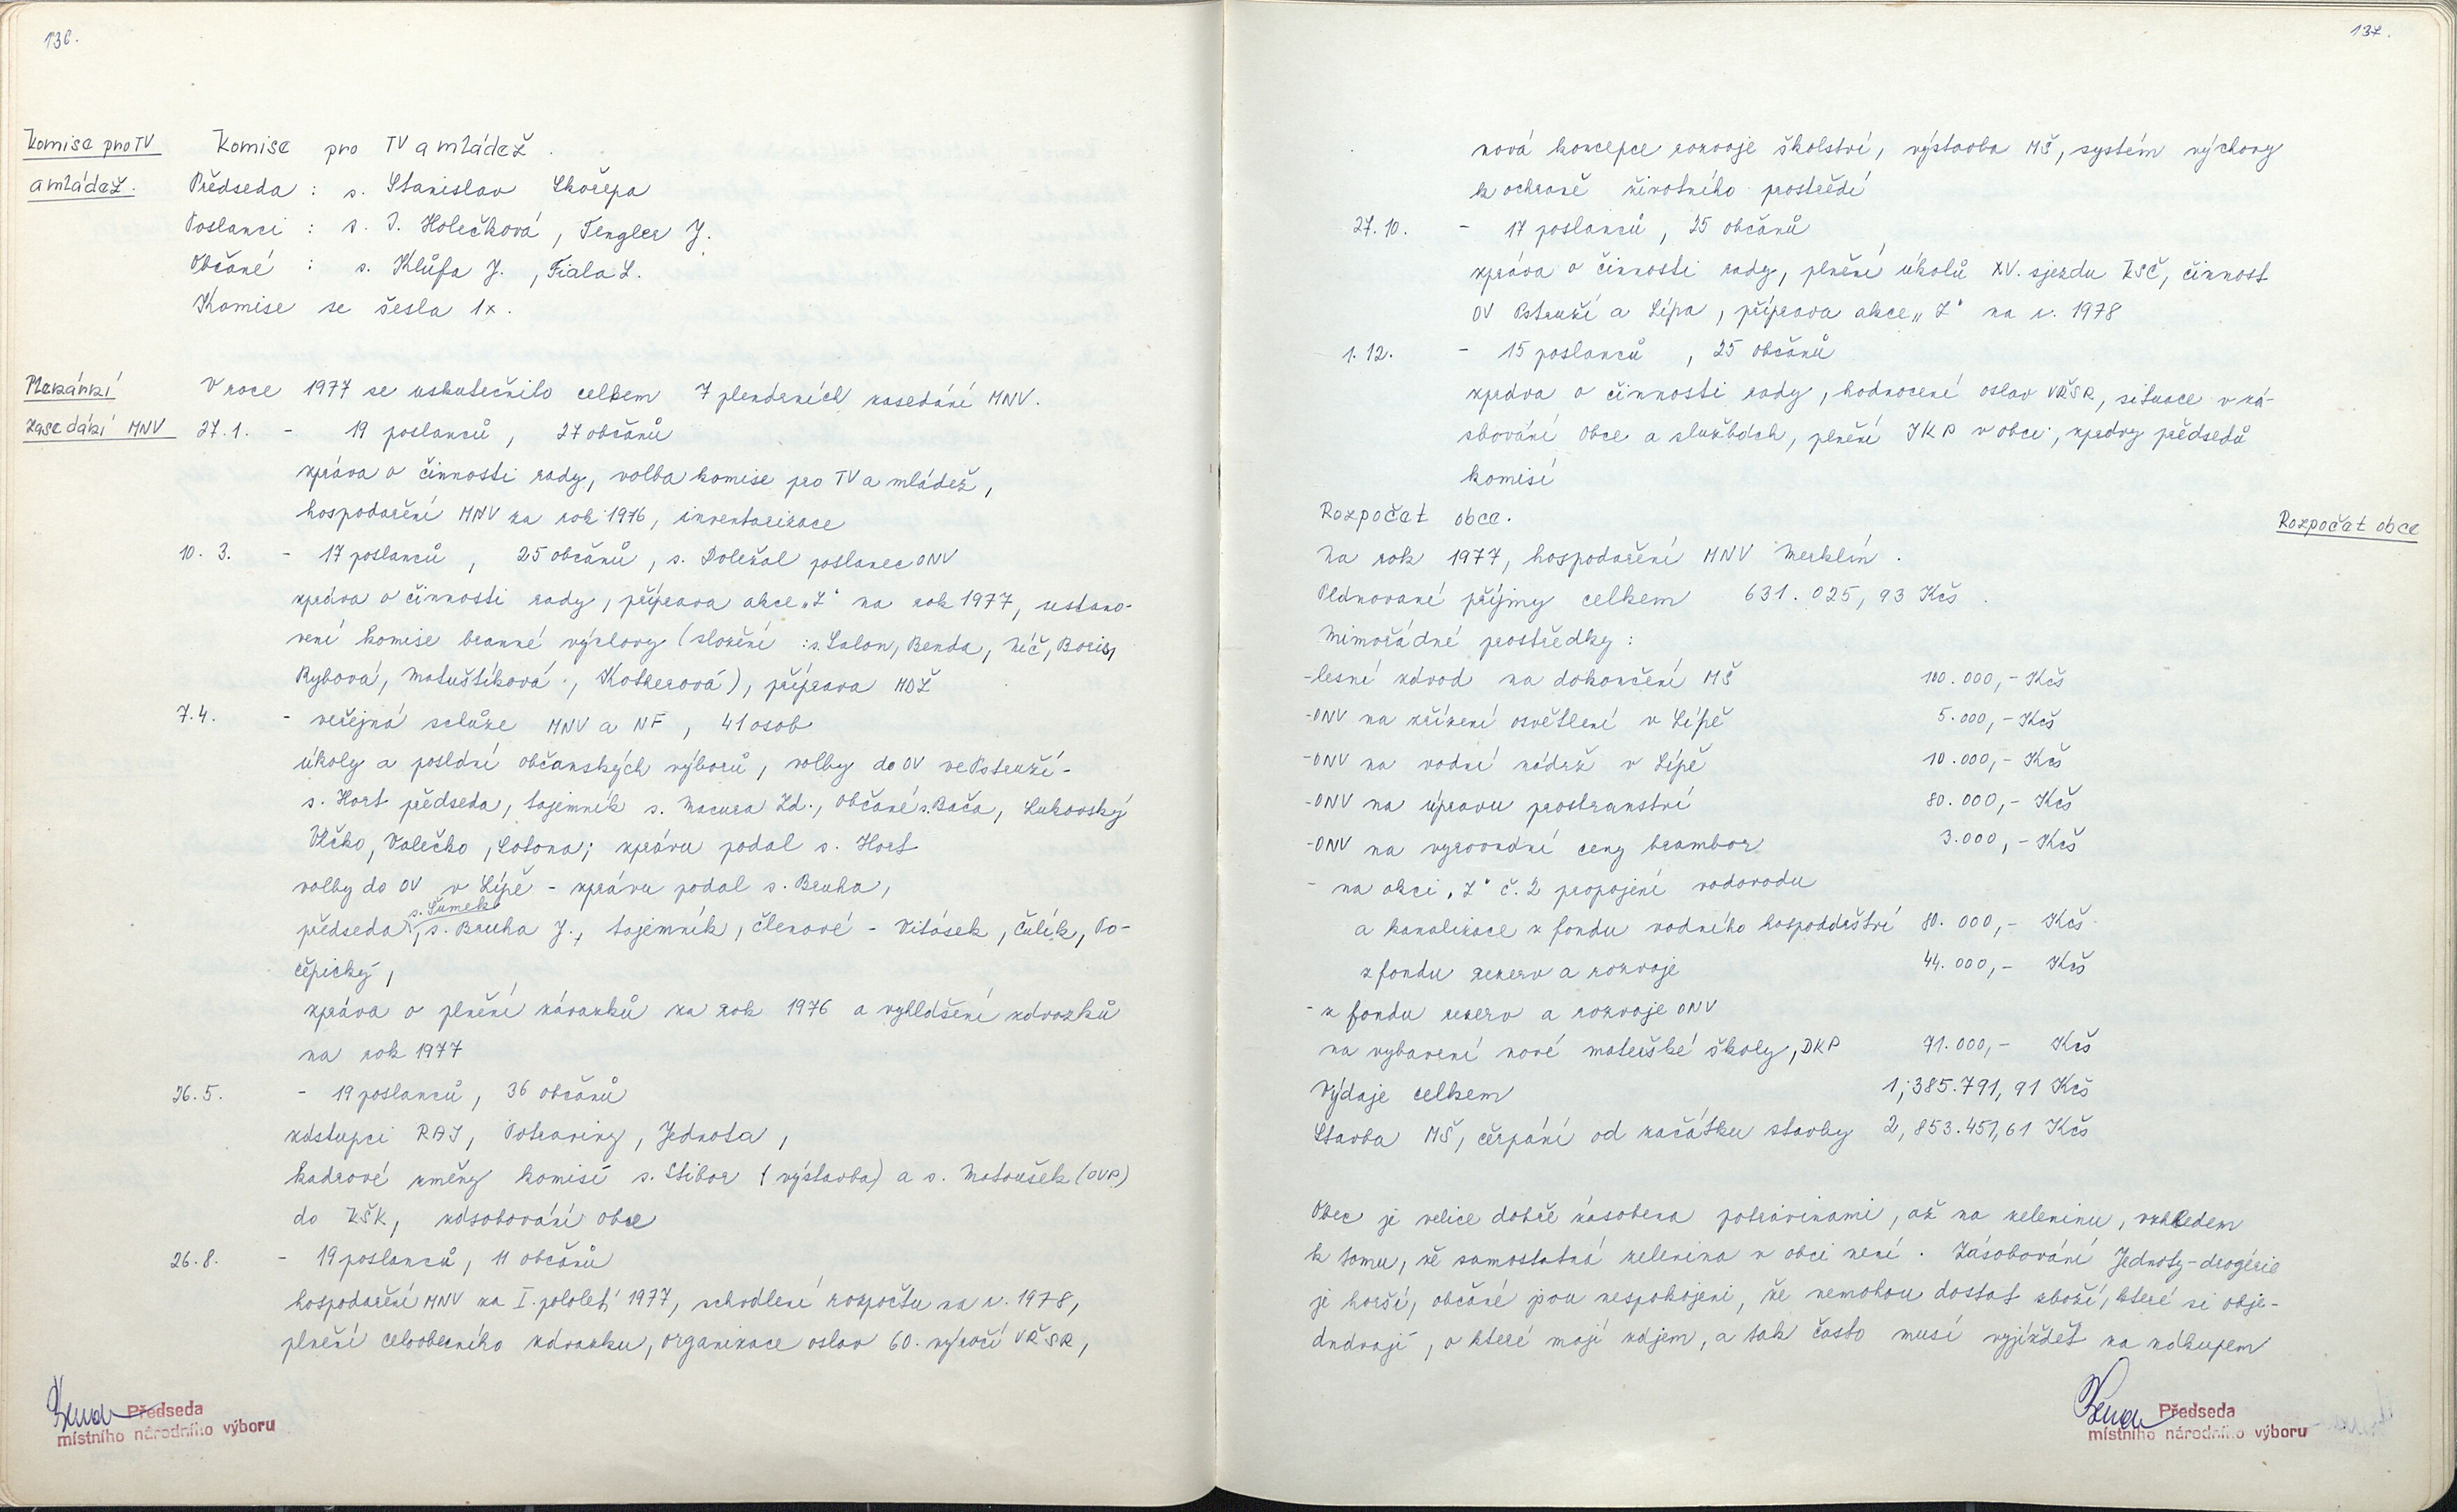 136.
Komise pro TV
a mládež.
Komise pro TV a mládež.
Předseda : s. Stanislav Skořepa
Poslanci : s. I. Holečková, Tengler J.
Občané : s. Klůfa J., Fiala L.
Komise se sešla 1x.
Plenární
zasedání MNV
V roce 1977 se uskutečnilo celkem 7 plenárních zasedání MNV.
27.1. - 19 poslanců, 27 občanů
zpráva o činnosti rady, volba komise pro TV a mládež,
hospodaření MNV za rok 1976, inventarizace
10. 3. - 17 poslanců, 25 občanů, s. Doležal poslanec ONV
zpráva o činnosti rady, příprava akce „Z" na rok 1977, ustano-
vení komise branné výchovy (složení : s. Salon, Benda, Míč, Boris,
Rybová, Matuštíková, Kotherová), příprava MDŽ
7.4. - veřejná schůze MNV a NF, 41 osob
úkoly a poslání občanských výborů, volby do OV ve Pstruží -
s. Hort předseda, tajemník s. Macura Zd., občané s. Bača, Lukovský
Vlčko, Valečko, Lotona; zprávu podal s. Hort
volby do OV v Lípě - zprávu podal s. Bruha,
s. Šumek
předseda, s. Bruha J., tajemník, členové - Vitásek, Čulík, Po-
čepický,
zpráva o plnění závazků za rok 1976 a vyhlášení závazků
na rok 1977
26.5. - 19 poslanců, 36 občanů
zástupci RAJ, Potraviny, Jednota,
kadrové změny komisí s. Stibor (výstavba) a s. Matoušek (OVP)
do KŠK, zásobování obce
26.8. - 19 poslanců, 11 občanů
hospodaření MNV za I. pololetí 1977, schválení rozpočtu na r. 1978,
plnění celoobecního závazku, organizace oslav 60. výročí VŘSR,
Předseda
místního národního výboru
137.
nová koncepce rozvoje školství, výstavba MŠ, systém výchovy
k ochraně životního prostředí
27.10. - 17 poslanců, 25 občanů
zpráva o činnosti rady, plnění úkolů XV. sjezdu KSČ, činnost
OV Pstruží a Lípa, příprava akce „Z" na r. 1978
1.12. - 15 poslanců, 25 občanů
zpráva o činnosti rady, hodnocení oslav VŘSR, situace v zá-
sobování obce a službách, plnění JKP v obci, zprávy předsedů
komisí
Rozpočet obce.
Rozpočet obce
Na rok 1977, hospodaření MNV Merklín.
Plánované příjmy celkem 631.025,93 Kčs.
Mimořádné prostředky :
-lesní závod na dokončení MŠ 100.000,- Kčs
-ONV na zřízení osvětlení v Lípě 5.000,- Kčs
-ONV na vodní nádrž v Lípě 10.000,- Kčs
-ONV na úpravu prostranství 80.000,- Kčs
-ONV na vyrovnání ceny brambor 3.000,- Kčs
- na akci „Z" č. 2 propojení vodovodu
a kanalizace z fondu vodního hospodářství 80.000,- Kčs
z fondu rezerv a rozvoje 44.000,- Kčs
- z fondu rezerv a rozvoje ONV
na vybavení nové mateřské školy, DKP 71.000,- Kčs
Výdaje celkem 1,385.791,91 Kčs
Stavba MŠ, čerpání od začátku stavby 2,853.451,61 Kčs
Obec je velice dobře zásobena potravinami, až na zeleninu, vzhledem
k tomu, že samostatná zelenina v obci není. Zásobování Jednoty-drogérie
je horší, občané jsou nespokojeni, že nemohou dostat zboží, které si obje-
dnávají, o které mají zájem, a tak často musí vyjíždět za nákupem
Předseda
místního národního výboru